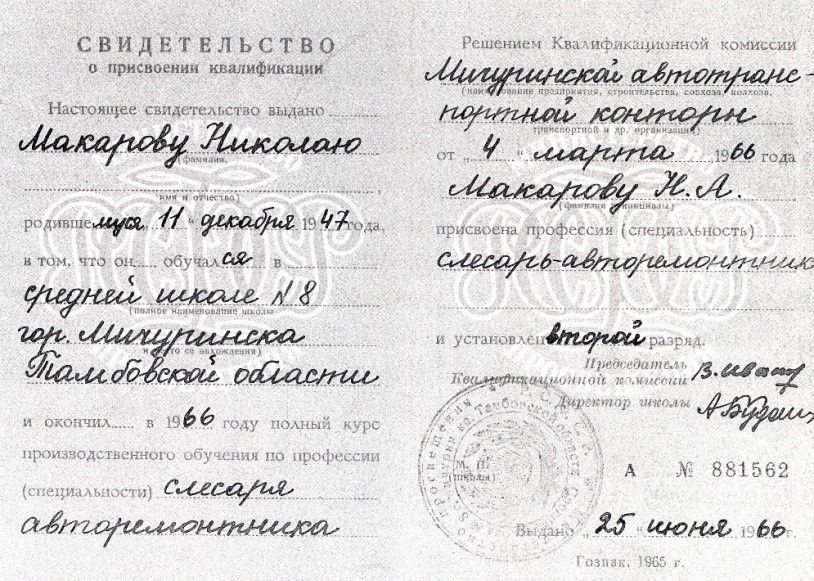 СВИДЕТЕЛЬСТВО
о присвоении квалификации
Настоящее свидетельство выдано
Макарову Николаю
(фамилия,
имя и отчество)
родившемуся „11" декабря 1947 года,
в том, что он обучался в
средней школе N 8
(полное наименование школы
гор. Мичуринска
и место ее нахождения)
Тамбовской области
и окончил в 1966 году полный курс
производственного обучения по профессии
(специальности) слесаря
авторемонтника
Решением Квалификационной комиссии
Мичуринской автотранс-
(наименование предприятия, строительства, совхоза, колхоза,
портной конторы
транспортной и др. организации)
от „4" марта 1966 года
Макарову Н.А.
(фамилия и инициалы)
присвоена профессия (специальность)
слесарь-авторемонтник
и установлен второй разряд.
Председатель
Квалификационной комиссии
Директор школы
М. П.
(школы)
А № 881562
Выдано „25 июня 1966 г.
Гознак. 1965 г.